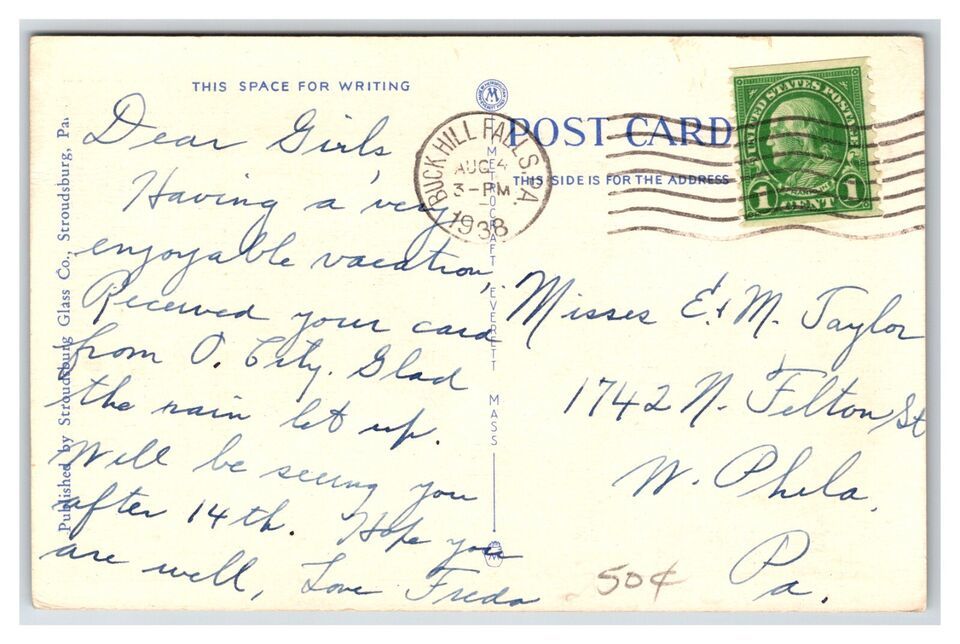 THIS SPACE FOR WRITING
Dear Girls
Having a very
enjoyable vacation,
Received your card
from O. City. Glad
the rain let up.
Will be seeing you
after 14th. Hope you
are well, Love Freda
Published by Stroudsburg Glass Co., Stroudsburg, Pa.
METROCRAFT EVERETT MASS
BUCK HILL FALLS, PA.
AUG 4
3-PM
1938
POST CARD
THIS SIDE IS FOR THE ADDRESS
UNITED STATES POSTAGE
FRANKLIN
1 CENT 1
Misses E. & M. Taylor
1742 N. Felton St
W. Phila.
Pa.
50¢